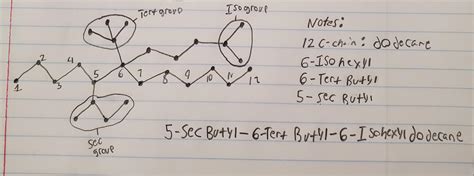 Tert group
Iso group
Notes:
12 C-chain: dodecane
6-Isohexyl
6-Tert Butyl
5-sec Butyl
1 2 3 4 5 6 7 8 9 10 11 12
sec
group
5-Sec Butyl-6-Tert Butyl-6-Isohexyl dodecane